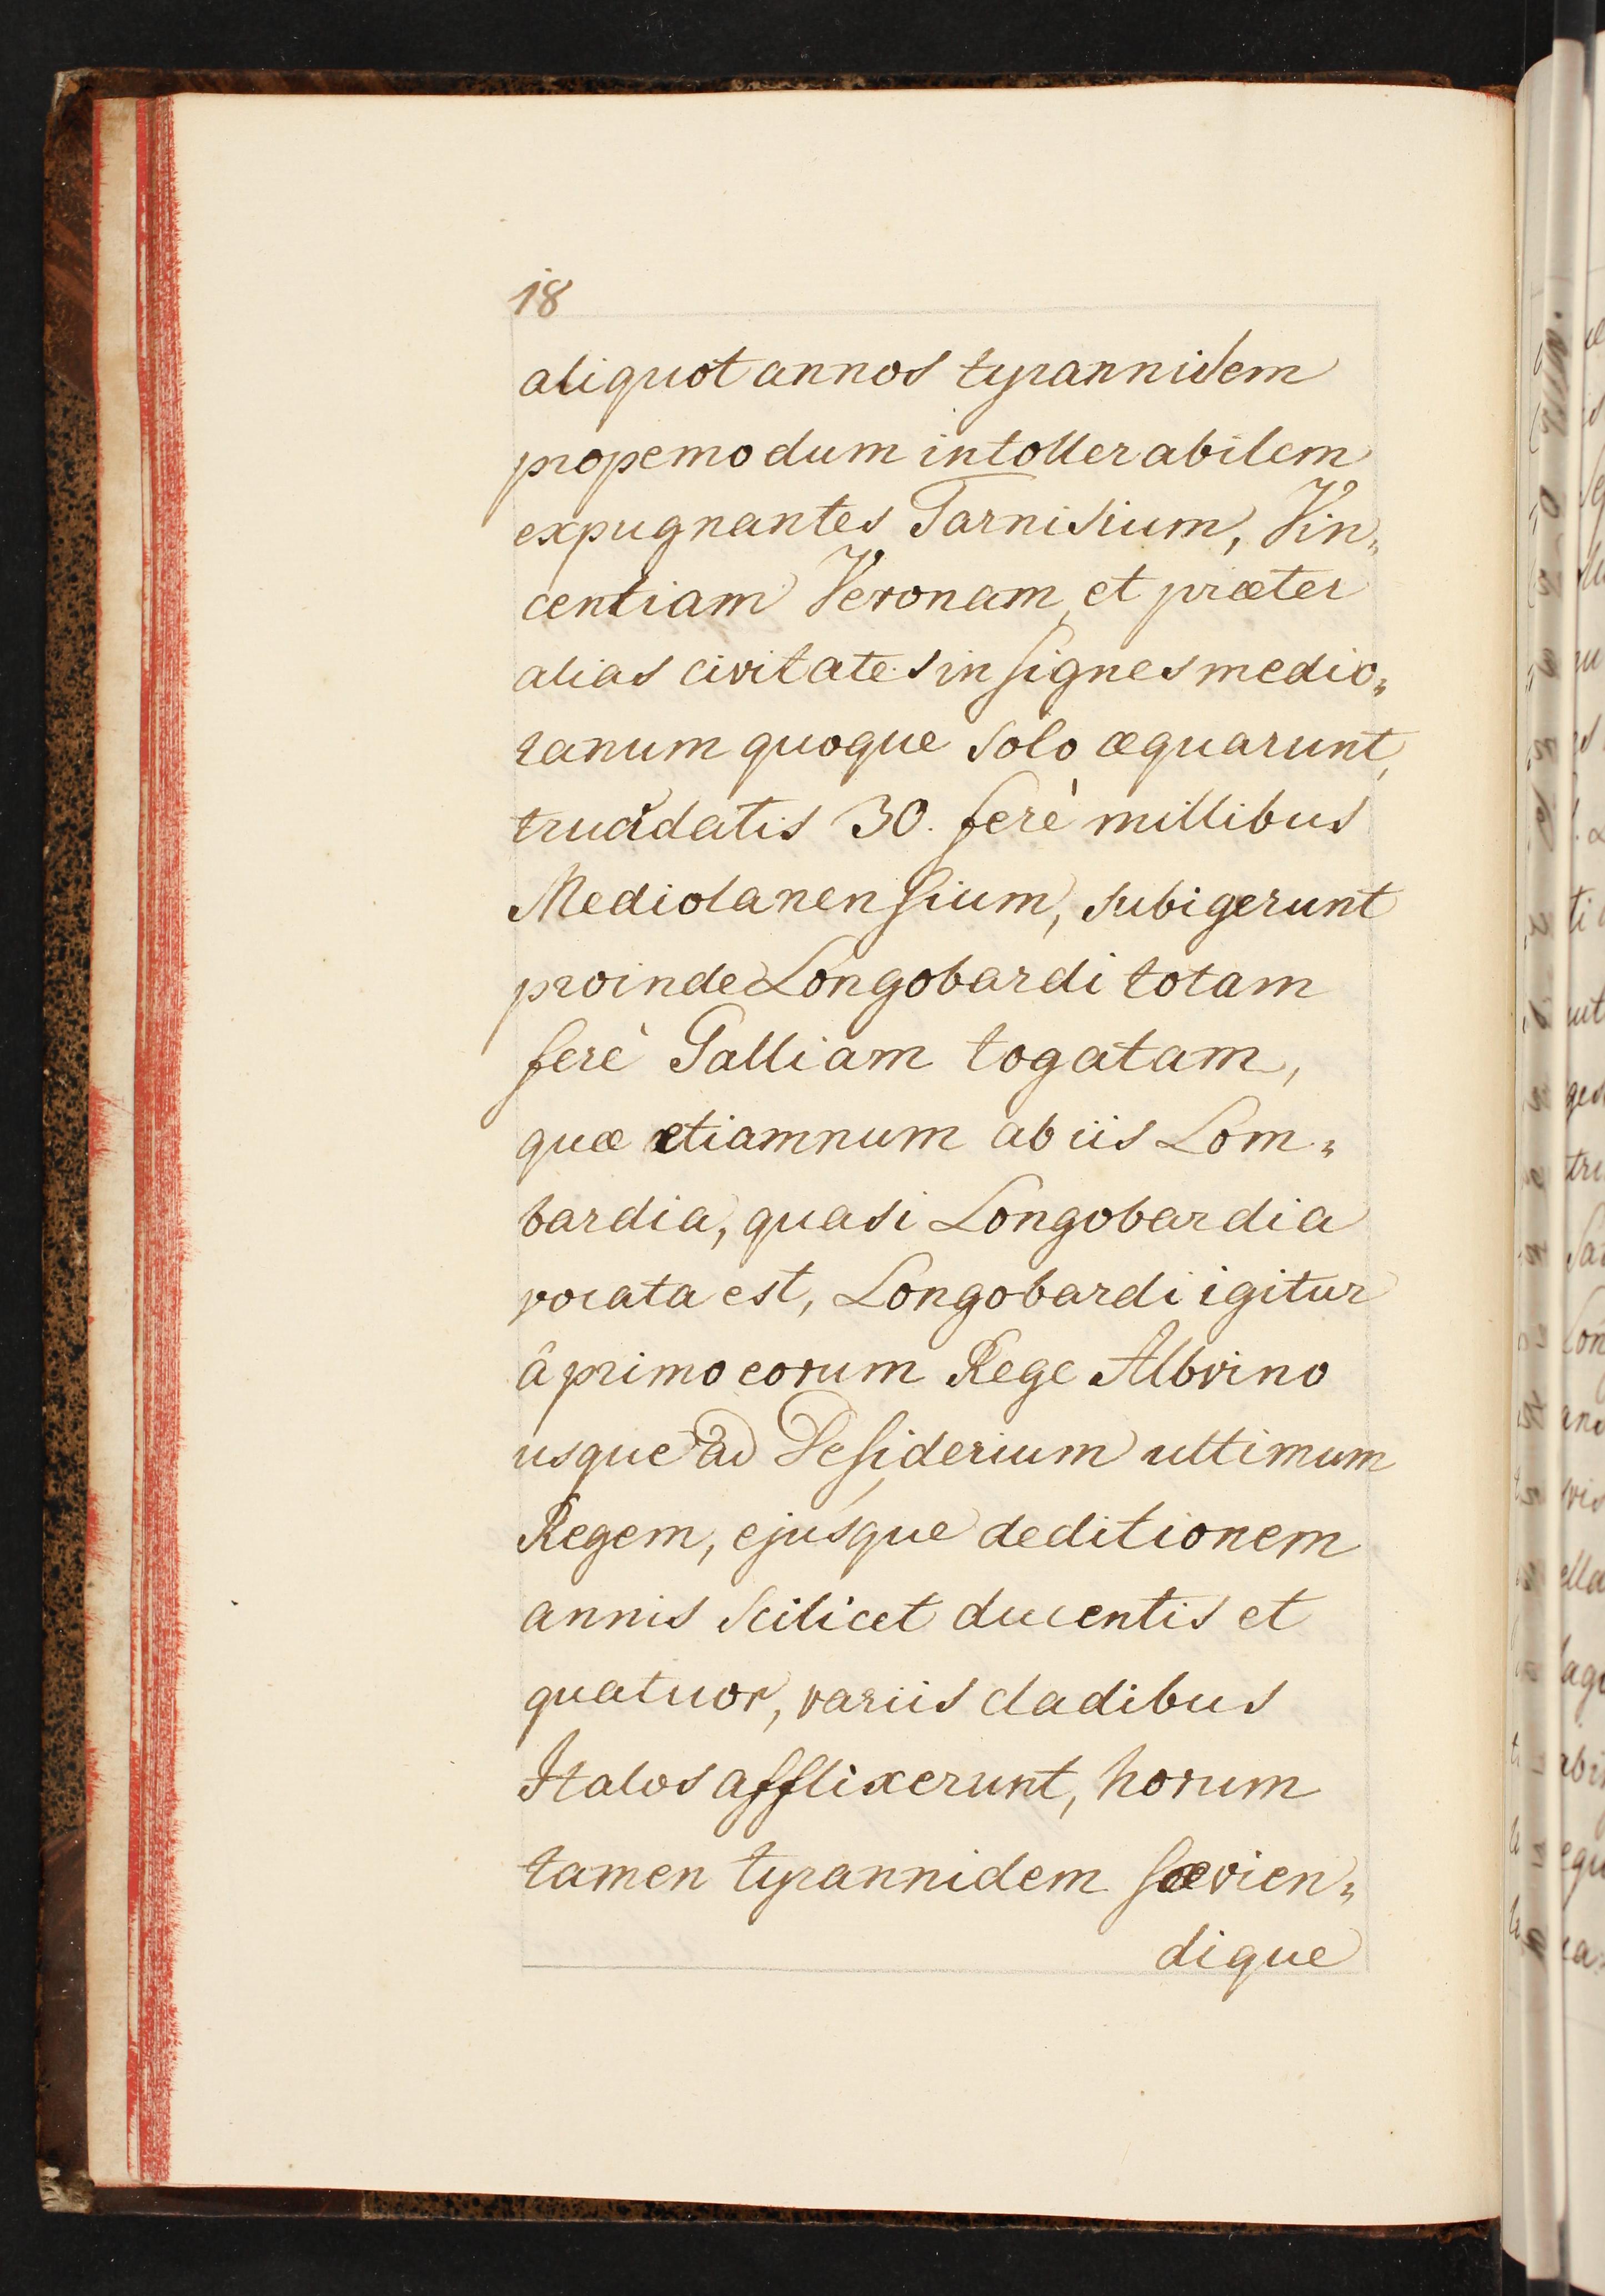 18
aliquot annos tyrannidem
propemodum intollerabilem
expugnantes Tarnisium, Vin„
centiam Veronam, et præter
alias civitates insignes medio„
lanum quoque solo æquarunt,
trucidatis 30. ferè millibus
Mediolanensium, subigerunt
proinde Longobardi totam
ferè Galliam togatam,
quæ etiamnum ab iis Lom„
bardia, quasi Longobardia
vocata est, Longobardi igitur
â primo eorum Rege Albvino
usque ad Desiderium ultimum
Regem, ejusque deditionem
annis scilicet ducentis et
quatuor, variis cladibus
Italos afflixerunt, horum
tamen tyrannidem sævien„
dique